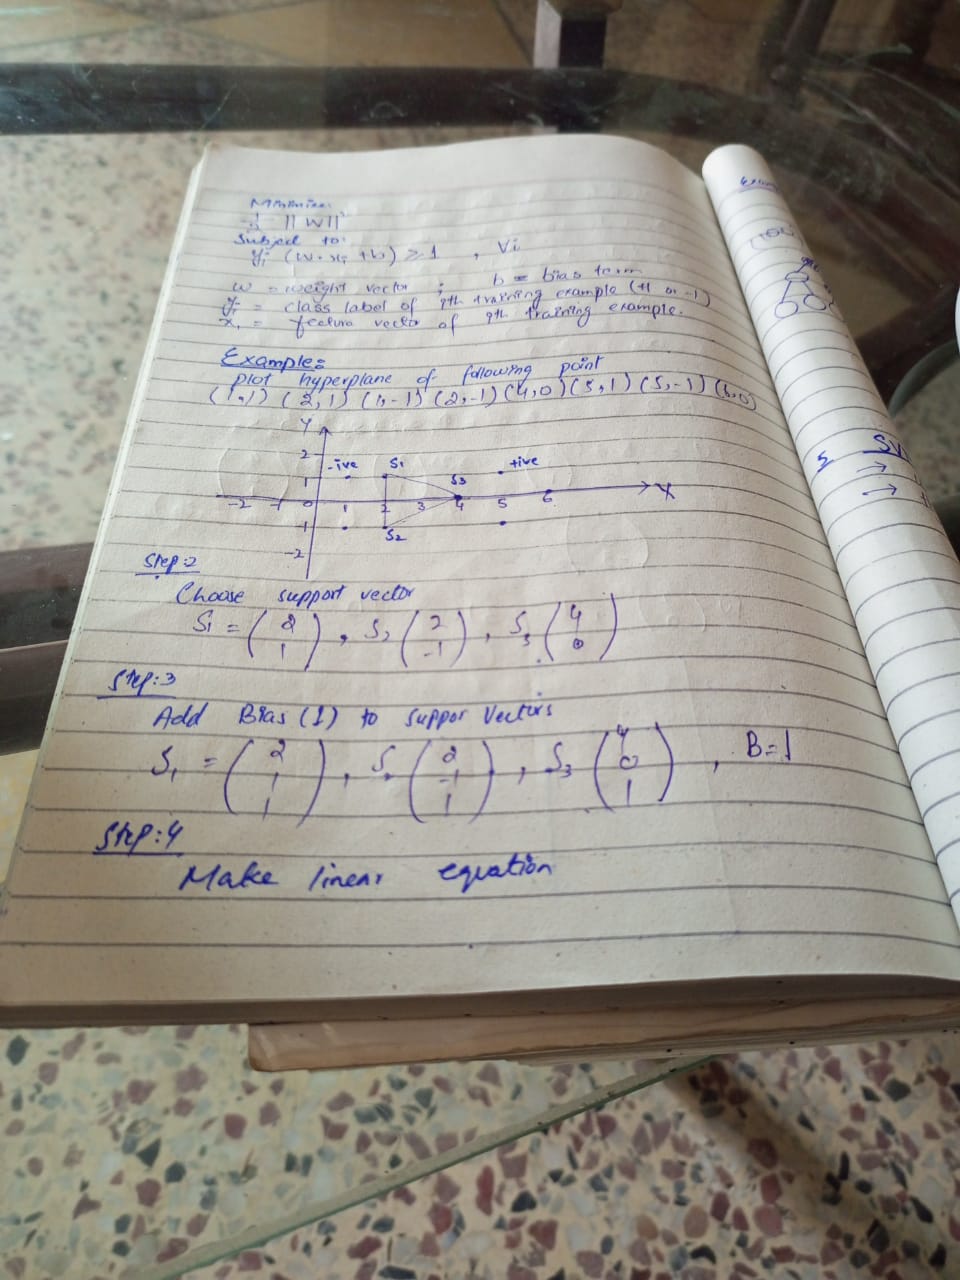 Minimize:
1/2 ||W||²
Subject to:
yi (w·xi +b) ≥ 1 , ∀i
w = weight vector ; b = bias term
yi = class label of ith training example (+1 or -1)
xi = feature vector of ith training example.
Example:
plot hyperplane of following point
(1,1) (2,1) (1,-1) (2,-1) (4,0) (5,1) (5,-1) (6,0)
Y
2
-ive S1 +ive
1 S3
-2 -1 0 1 2 3 4 5 6 X
-1 S2
-2
Step:2
Choose support vector
S1 = (2 1) , S2 (2 -1) , S3 (4 0)
Step:3
Add Bias (1) to suppor Vectors
S1 = (2 1 1) , S2 (2 -1 1) , S3 (4 0 1) , B=1
Step:4
Make linear equation